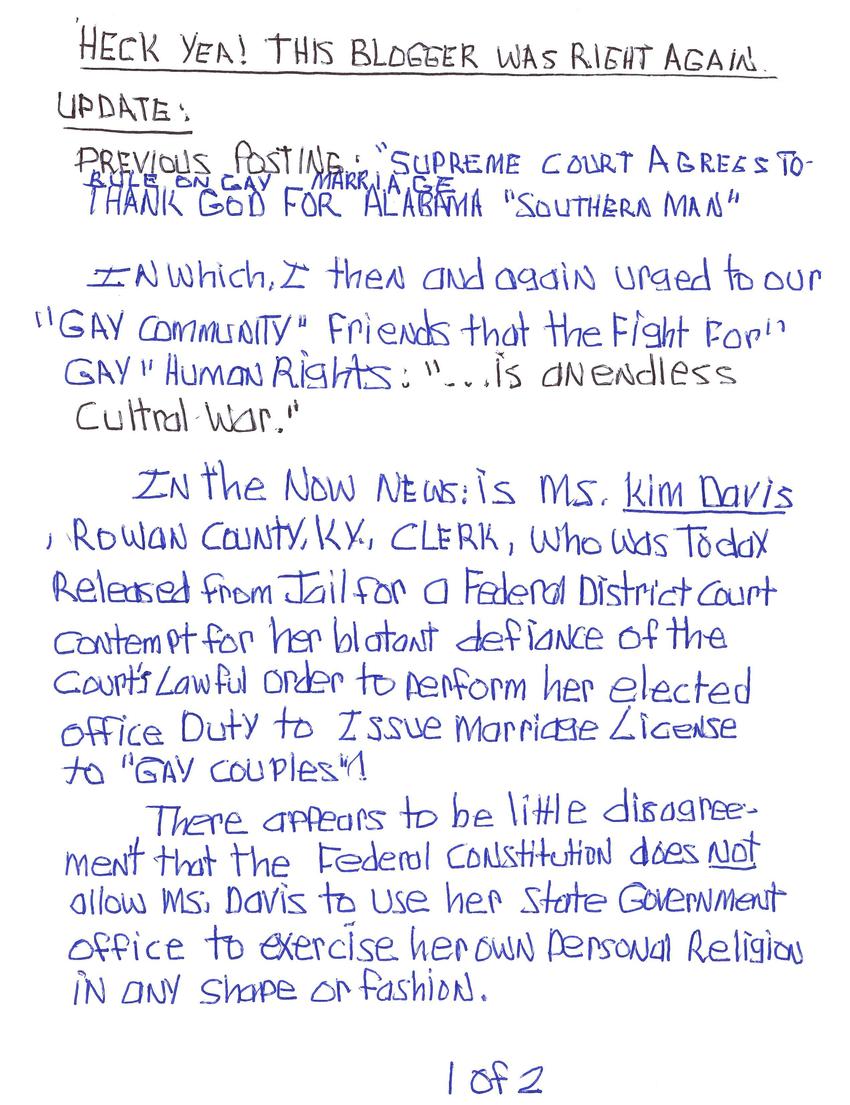 'HECK YEA! THIS BLOGGER WAS RIGHT AGAIN.
UPDATE:
PREVIOUS POSTING: "SUPREME COURT AGREES TO-
RULE ON GAY MARRIAGE
THANK GOD FOR ALABAMA "SOUTHERN MAN"
IN which, I then and again urged to our
"GAY COMMUNITY" Friends that the Fight For"
GAY" HUMAN Rights: "...is an endless
Cultral War."
IN the NOW NEWS: is Ms. Kim Davis
, ROWAN COUNTY, KY., CLERK, who was Today
Released from Jail for a Federal District Court
contempt for her blatant defiance of the
Court's Lawful order to perform her elected
office Duty to Issue Marriage License
to "GAY COUPLES"!
There appears to be little disagree-
ment that the Federal CONSTITUTION does Not
allow Ms. Davis to use her State Government
office to exercise her own Personal Religion
IN ANY shape or fashion.
1 of 2